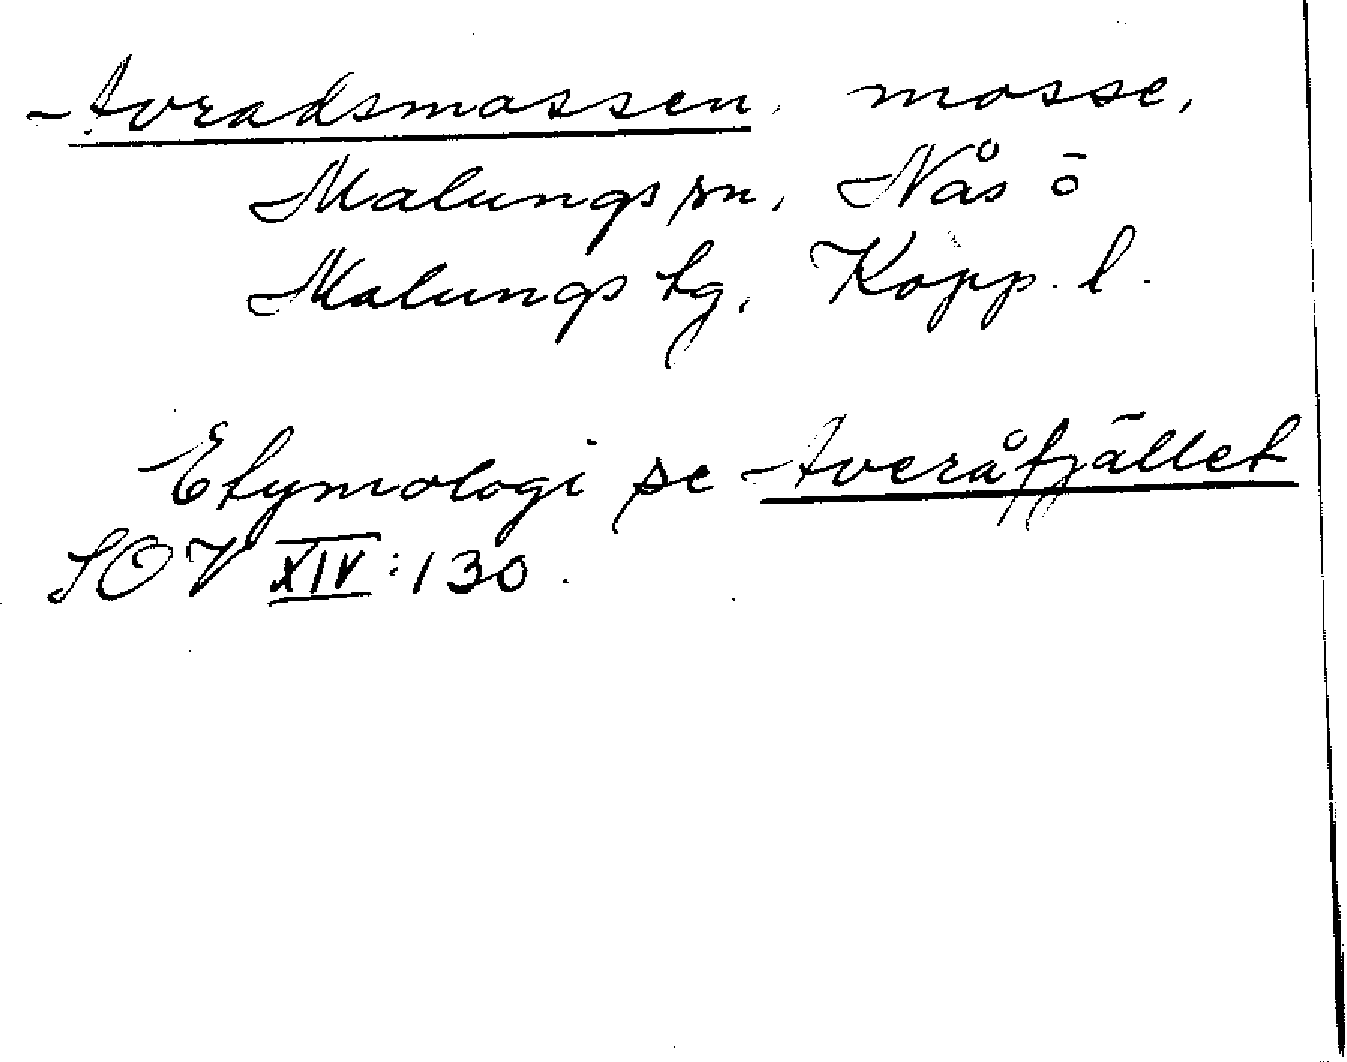 Avradsmossen, mosse,
Malungs sn, Nås ō
Malungs tg, Kopp. l.
Etymologi se Averåfjället
SOV XIV:130.